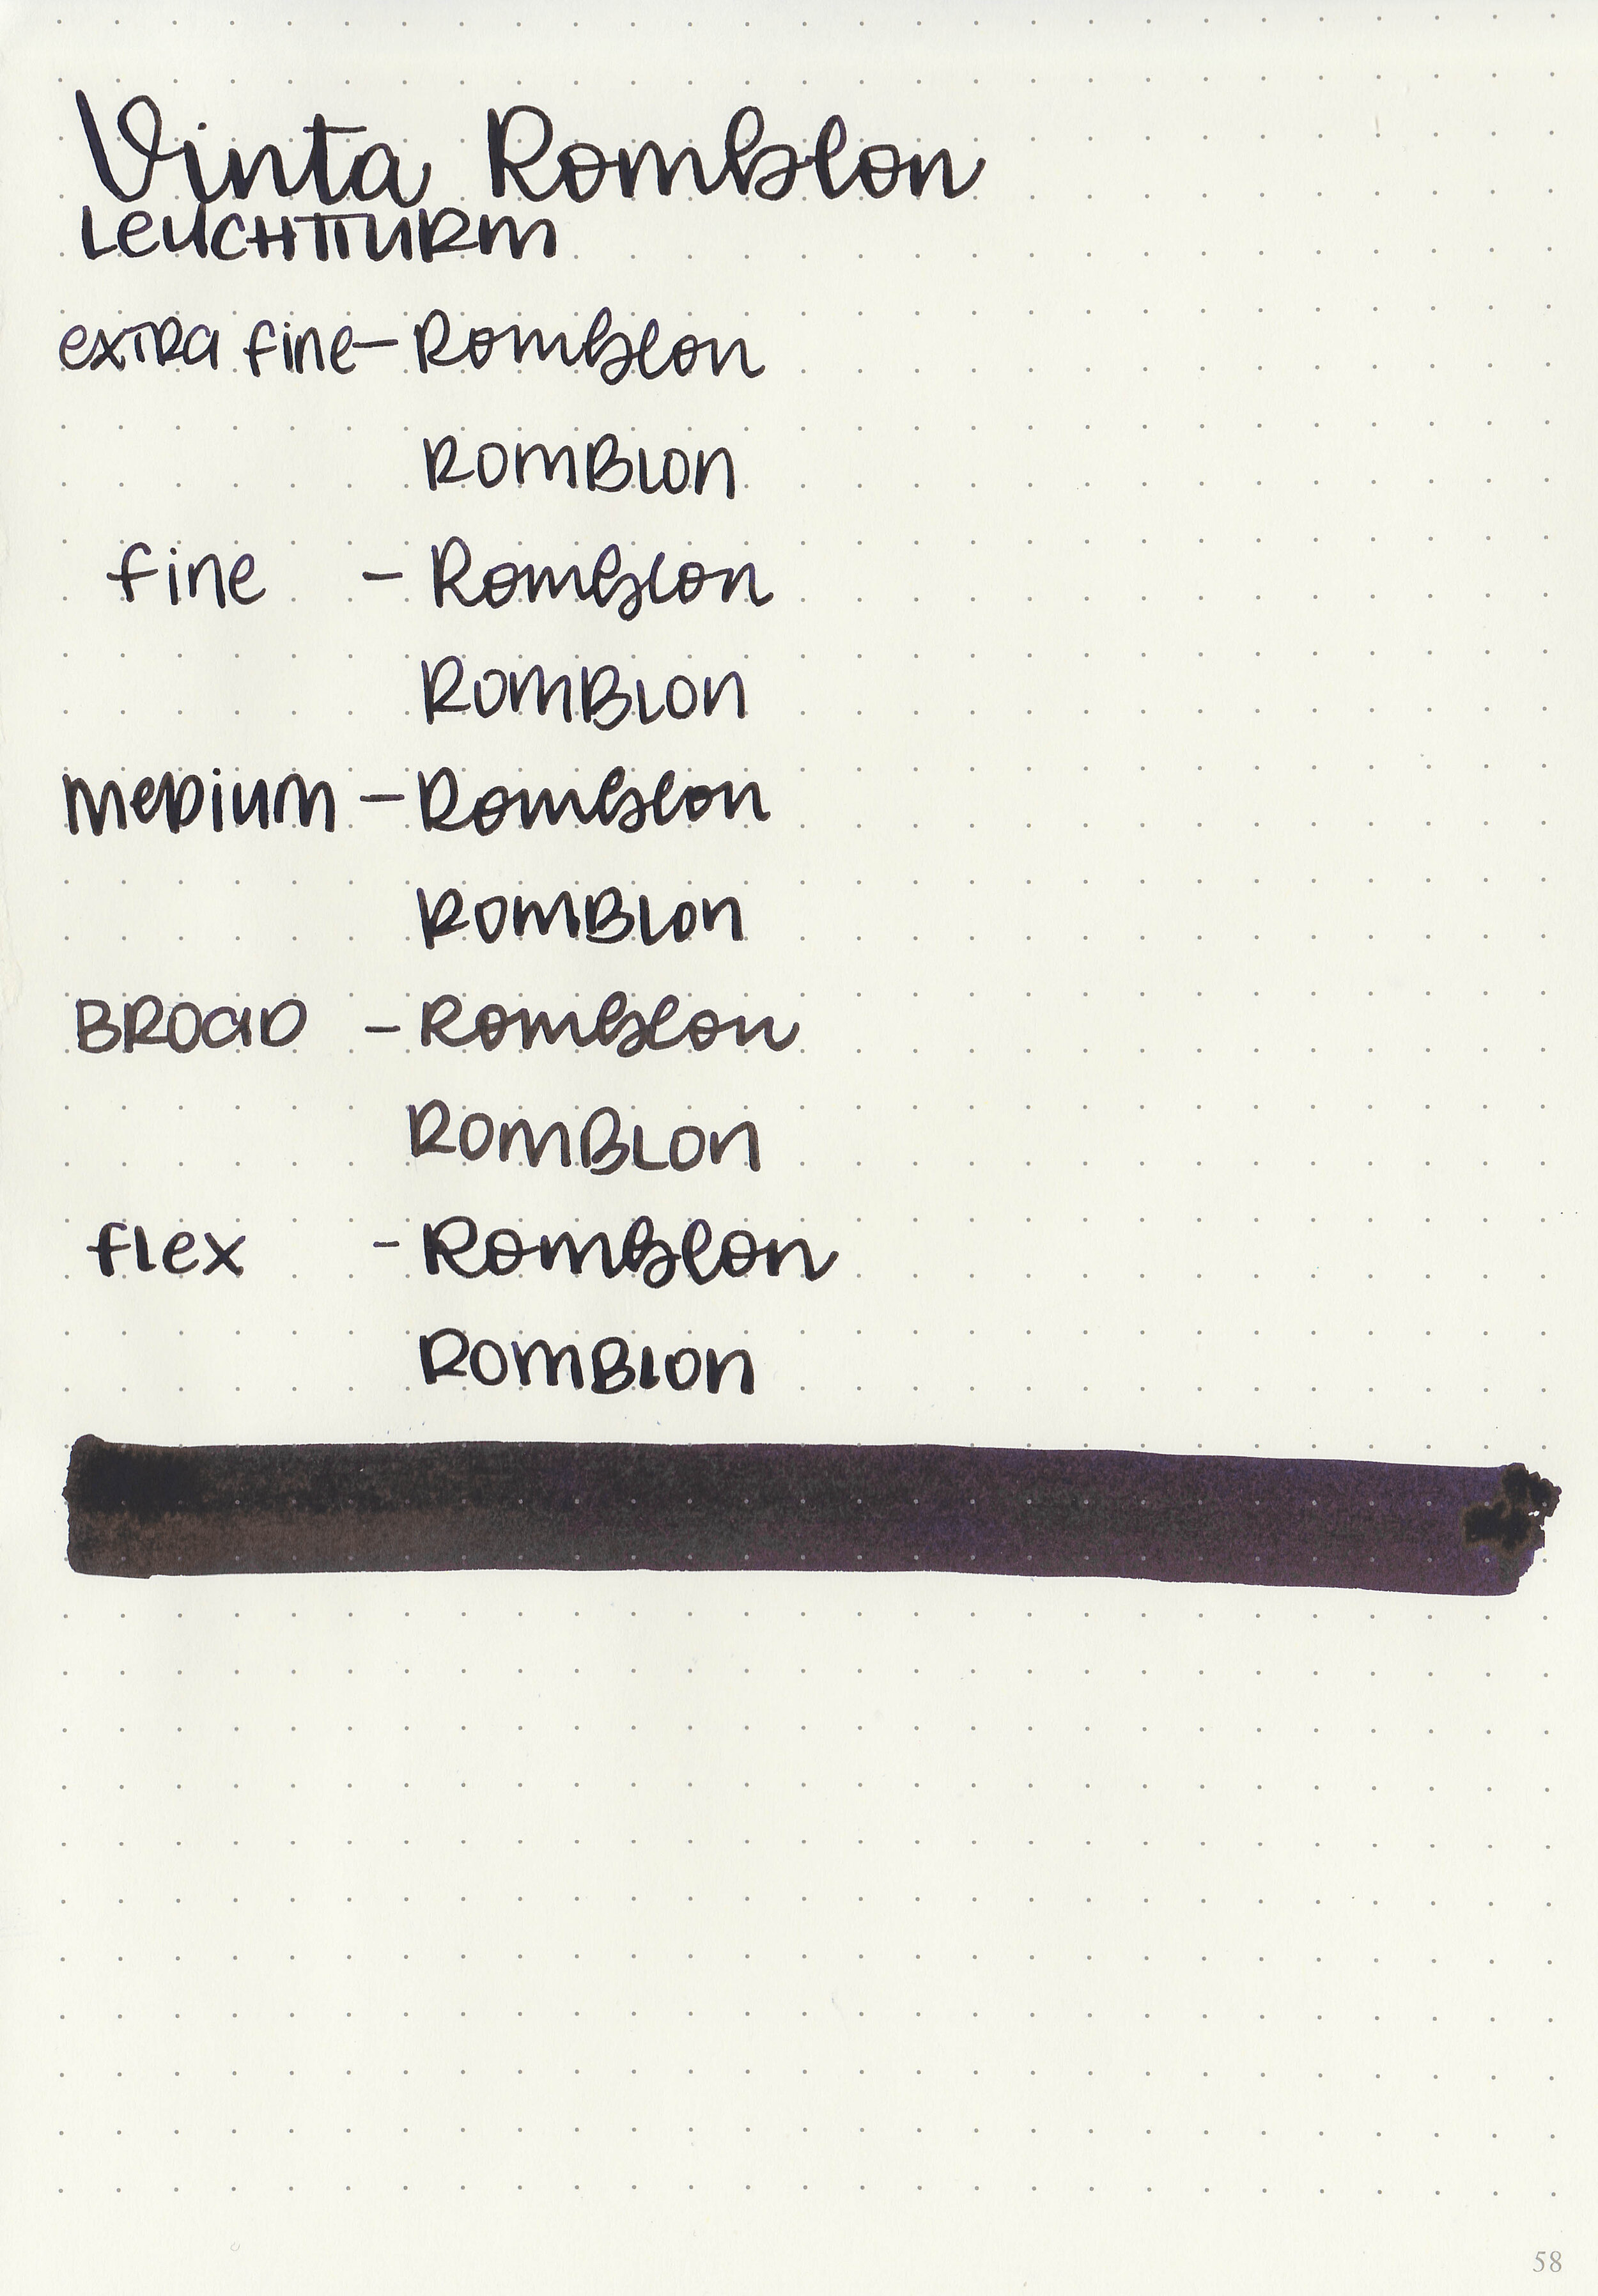 Vinta Romblon
LEUCHTTURM
extra fine - Romblon
RomBlon
fine - Romblon
RomBlon
meDium - Romblon
RomBlon
BROaD - Romblon
RomBLon
flex - Romblon
RomBlon
58